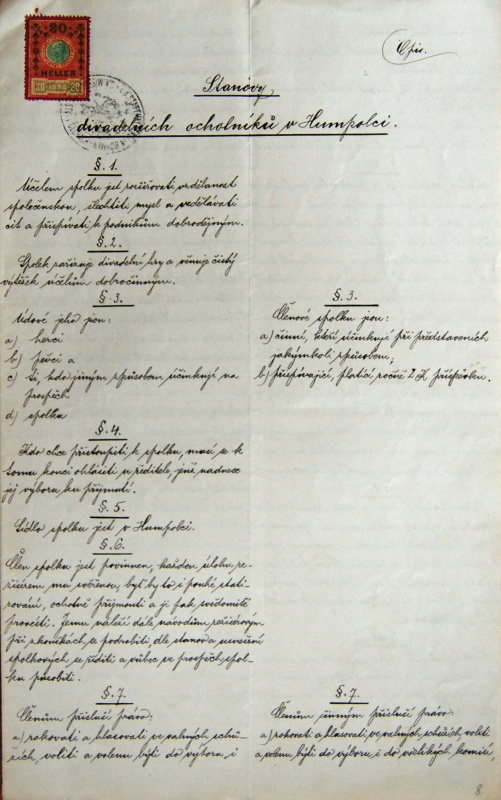 Opis.
30
HELLER
Stanovy
divadelních ochotníků v Humpolci.
§. 1.
Účelem spolku jest rozšiřovati vzdělanost
společenskou, šlechtiti mysl a vzdělávati
cit a přispívati k podnikům dobročinným.
§. 2.
Spolek zařizuje divadelní hry a věnuje čistý
výtěžek účelům dobročinným.
§. 3.
Údové jeho jsou:
a) herci
b) pěvci a
c) ti, kdo jiným způsobem účinkují na
prospěch
d) spolku
§. 4.
Kdo chce přistoupiti k spolku, musí se k
tomu konci ohlásiti u ředitele, jenž nadnese
jej výboru ku přijmutí.
§. 5.
Sídlo spolku jest v Humpolci.
§. 6.
Člen spolku jest povinnen, každou úlohu re-
žisérem mu svěřenou, byť by to i pouhé stati-
rování, ochotně přijmouti a ji tak svědomitě
provésti. Jemu náleží dále návodům režisérovým
při zkouškách se podrobiti, dle stanov a usnešení
spolkových se říditi a vůbec ve prospěch spol-
ku působiti.
§. 7.
Členům přísluší právo:
a) rokovati a hlasovati ve valných schů-
zích, voliti a volenu býti do výboru i
§. 3.
Členové spolku jsou:
a) činní, kteří účinkují při představeních
jakýmkoli způsobem;
b) přispívající, platící ročně 2 K příspěvku.
§. 7.
Členům činným přísluší právo:
a) rokovati a hlasovati ve valných schůzích voliti
a volenu býti do výboru i do všelikých komisí,
8